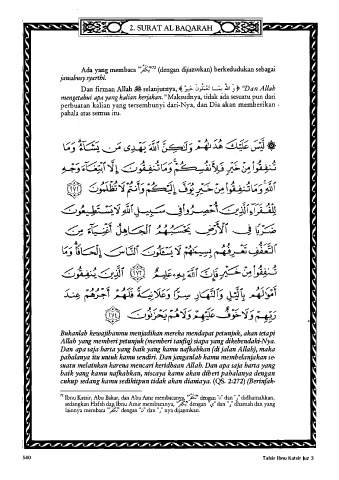 2. SURAT AL BAQARAH
Ada yang membaca "يُكَفِّرْ"⁷² (dengan dijazmkan) berkedudukan sebagai
jawabusy syarthi.
Dan firman Allah ﷻ selanjutnya, ﴿ وَ اللهُ بِمَا تَعْمَلُونَ خَبِيرٌ ﴾ "Dan Allah
mengetahui apa yang kalian kerjakan." Maksudnya, tidak ada sesuatu pun dari
perbuatan kalian yang tersembunyi dari-Nya, dan Dia akan memberikan
pahala atas semua itu.
۞ لَّيْسَ عَلَيْكَ هُدَىٰهُمْ وَلَٰكِنَّ ٱللَّهَ يَهْدِى مَن يَشَآءُ وَمَا
تُنفِقُوا۟ مِنْ خَيْرٍ فَلِأَنفُسِكُمْ وَمَا تُنفِقُونَ إِلَّا ٱبْتِغَآءَ وَجْهِ
ٱللَّهِ وَمَا تُنفِقُوا۟ مِنْ خَيْرٍ يُوَفَّ إِلَيْكُمْ وَأَنتُمْ لَا تُظْلَمُونَ ﴿٢٧٢﴾
لِلْفُقَرَآءِ ٱلَّذِينَ أُحْصِرُوا۟ فِى سَبِيلِ ٱللَّهِ لَا يَسْتَطِيعُونَ
ضَرْبًا فِى ٱلْأَرْضِ يَحْسَبُهُمُ ٱلْجَاهِلُ أَغْنِيَآءَ مِنَ
ٱلتَّعَفُّفِ تَعْرِفُهُم بِسِيمَٰهُمْ لَا يَسْـَٔلُونَ ٱلنَّاسَ إِلْحَافًا وَمَا
تُنفِقُوا۟ مِنْ خَيْرٍ فَإِنَّ ٱللَّهَ بِهِۦ عَلِيمٌ ﴿٢٧٣﴾ ٱلَّذِينَ يُنفِقُونَ
أَمْوَٰلَهُم بِٱلَّيْلِ وَٱلنَّهَارِ سِرًّا وَعَلَانِيَةً فَلَهُمْ أَجْرُهُمْ عِندَ
رَبِّهِمْ وَلَا خَوْفٌ عَلَيْهِمْ وَلَا هُمْ يَحْزَنُونَ ﴿٢٧٤﴾
Bukanlah kewajibanmu menjadikan mereka mendapat petunjuk, akan tetapi
Allah yang memberi petunjuk (memberi taufiq) siapa yang dikehendaki-Nya.
Dan apa saja harta yang baik yang kamu nafkahkan (di jalan Allah), maka
pahalanya itu untuk kamu sendiri. Dan janganlah kamu membelanjakan se-
suatu melainkan karena mencari keridhaan Allah. Dan apa saja harta yang
baik yang kamu nafkahkan, niscaya kamu akan diberi pahalanya dengan
cukup sedang kamu sedikitpun tidak akan dianiaya. (QS. 2:272) (Berinfak-
Ibnu Katsir, Abu Bakar, dan Abu Amr membacanya, dengan "ن" dan "ر" didhamahkan,
sedangkan Hafsh dan Ibnu Amir membacanya, dengan "ي" dan "ر" dhamah dan yang
lainnya membaca dengan "ن" dan "ر" nya dijazmkan.
540
Tafsir Ibnu Katsir Juz 3